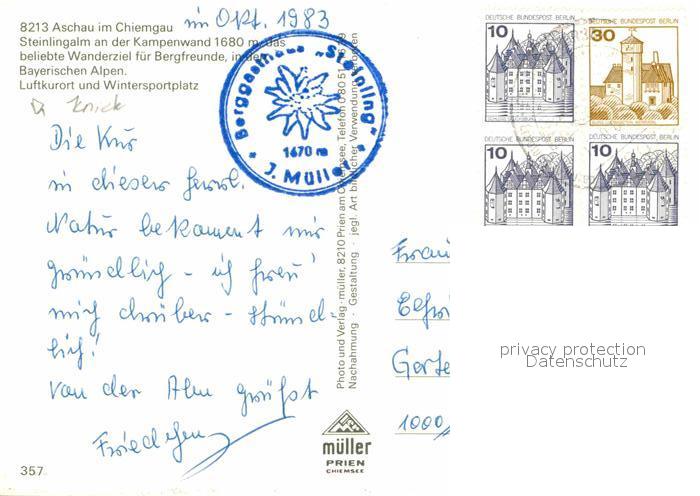 im Okt. 1983
8213 Aschau im Chiemgau
Steinlingalm an der Kampenwand 1680 m, das
beliebte Wanderziel für Bergfreunde, in den
Bayerischen Alpen.
Luftkurort und Wintersportplatz
Knick
Die Kur
in dieser herrl.
Natur bekommt mir
gründlich - ich freu'
mich drüber - stünd-
lich!
Von der Alm grüßt
357
Berggasthaus „Steinling"
1670 m
J. Müller
Photo und Verlag · müller, 8210 Prien am Chiemsee, Telefon 0 80 51
Nachahmung · Gestaltung · jegl. Art bildlicher Verwendung verboten
müller
PRIEN
CHIEMSEE
10 DEUTSCHE BUNDESPOST BERLIN
30 DEUTSCHE BUNDESPOST BERLIN
10 DEUTSCHE BUNDESPOST BERLIN
10 DEUTSCHE BUNDESPOST BERLIN
Frau
Gerte
1000
privacy protection
Datenschutz